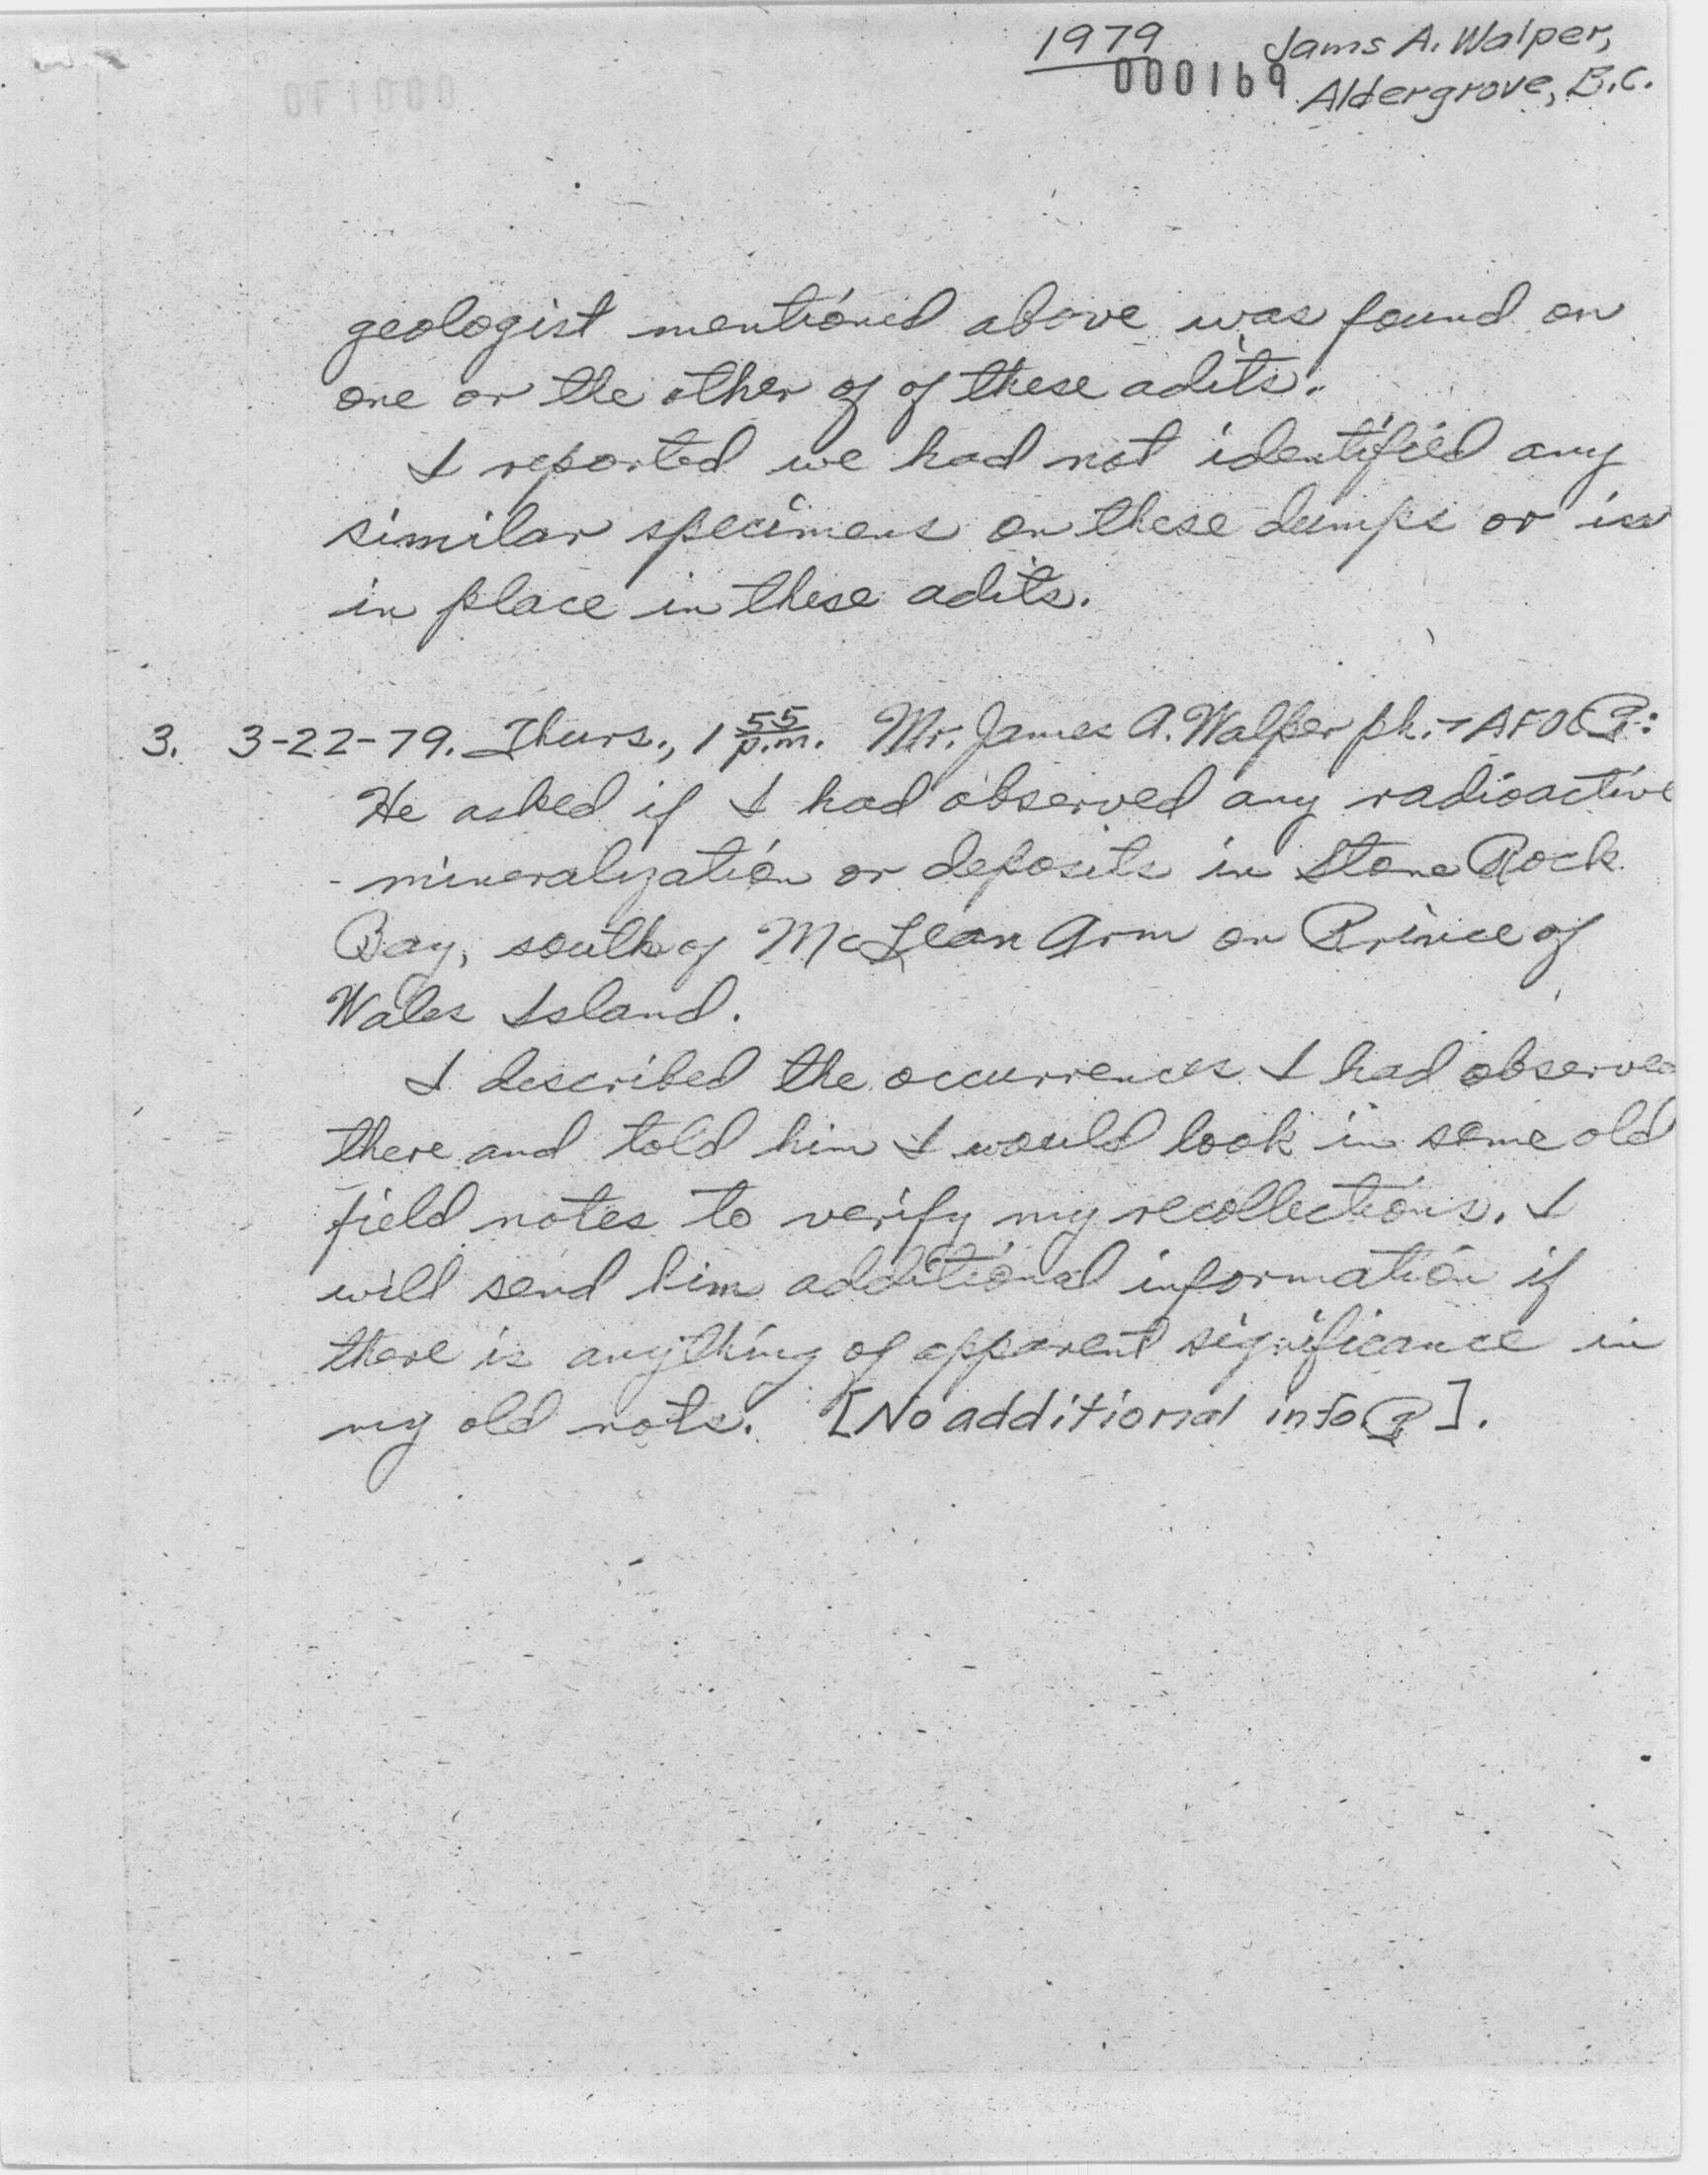 1979 Jams A. Walper,
000169 Aldergrove, B.C.
geologist mentioned above was found on
one or the other of of these adits.
I reported we had not identified any
similar specimens on these dumps or in
in place in these adits.
3. 3-22-79. Thurs., 1 55 p.m. Mr. James A. Walper ph. → AFOC
He asked if I had observed any radioactive
mineralization or deposits in Stone Rock
Bay, south of McLean Arm on Prince of
Wales Island.
I described the occurrences I had observed
there and told him I would look in some old
field notes to verify my recollections. I
will send him additional information if
there is anything of apparent significance in
my old nots. [No additional info. ].